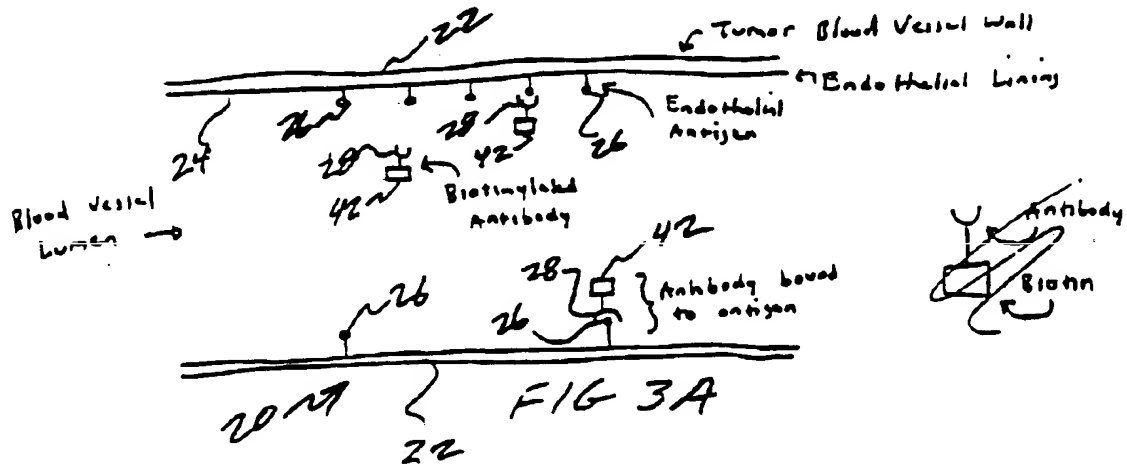 22
Tumor Blood Vessel Wall
Endothelial Lining
24
26
28
42
Endothelial
Antigen
26
28
42
Biotinylated
Antibody
Blood Vessel
Lumen
Antibody
Biotin
42
28
26
Antibody bound
to antigen
26
20
22
FIG 3A